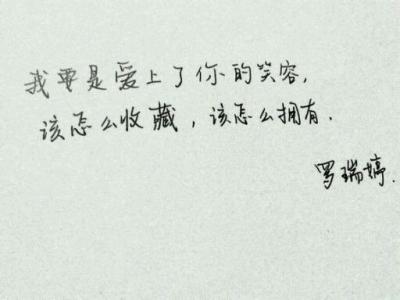 我要是爱上了你的笑容,
该怎么收藏,该怎么拥有.
罗瑞婷.